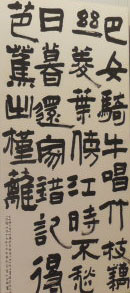 巴女騎牛唱竹枝藕
絲菱葉傍江時不愁
日暮還家錯記得
芭蕉出槿籬